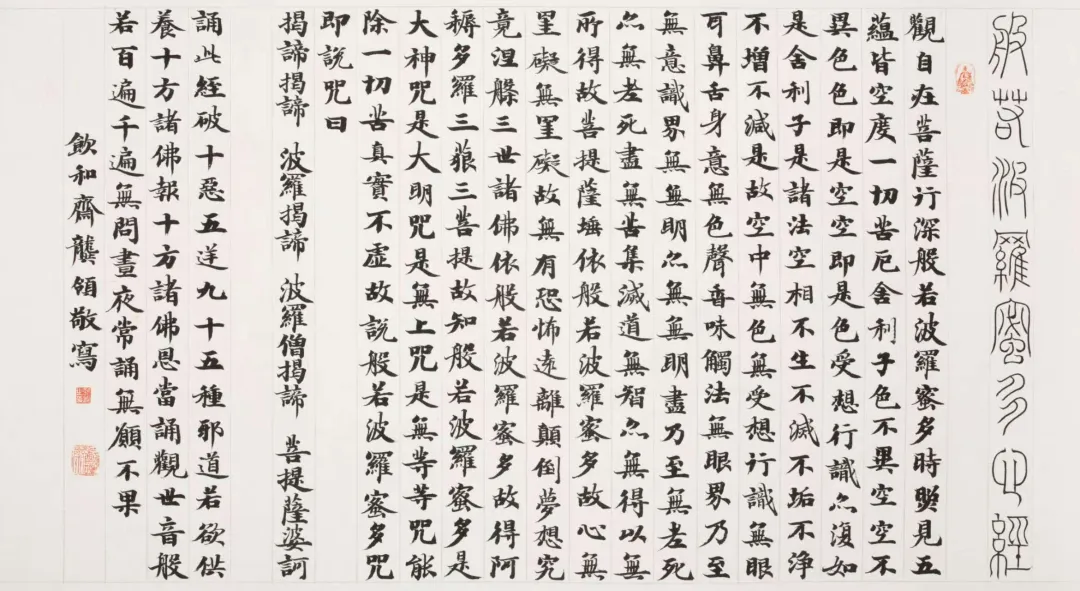 般若波羅蜜多心經
觀自在菩薩行深般若波羅蜜多時照見五
蘊皆空度一切苦厄舍利子色不異空空不
異色色即是空空即是色受想行識亦復如
是舍利子是諸法空相不生不滅不垢不淨
不增不減是故空中無色無受想行識無眼
耳鼻舌身意無色聲香味觸法無眼界乃至
無意識界無無明亦無無明盡乃至無老死
亦無老死盡無苦集滅道無智亦無得以無
所得故菩提薩埵依般若波羅蜜多故心無
罣礙無罣礙故無有恐怖遠離顛倒夢想究
竟涅槃三世諸佛依般若波羅蜜多故得阿
耨多羅三藐三菩提故知般若波羅蜜多是
大神咒是大明咒是無上咒是無等等咒能
除一切苦真實不虛故說般若波羅蜜多咒
即說咒曰
揭諦揭諦 波羅揭諦 波羅僧揭諦 菩提薩婆訶
誦此經破十惡五逆九十五種邪道若欲供
養十方諸佛報十方諸佛恩當誦觀世音般
若百遍千遍無問晝夜常誦無願不果
飲和齋龔領敬寫